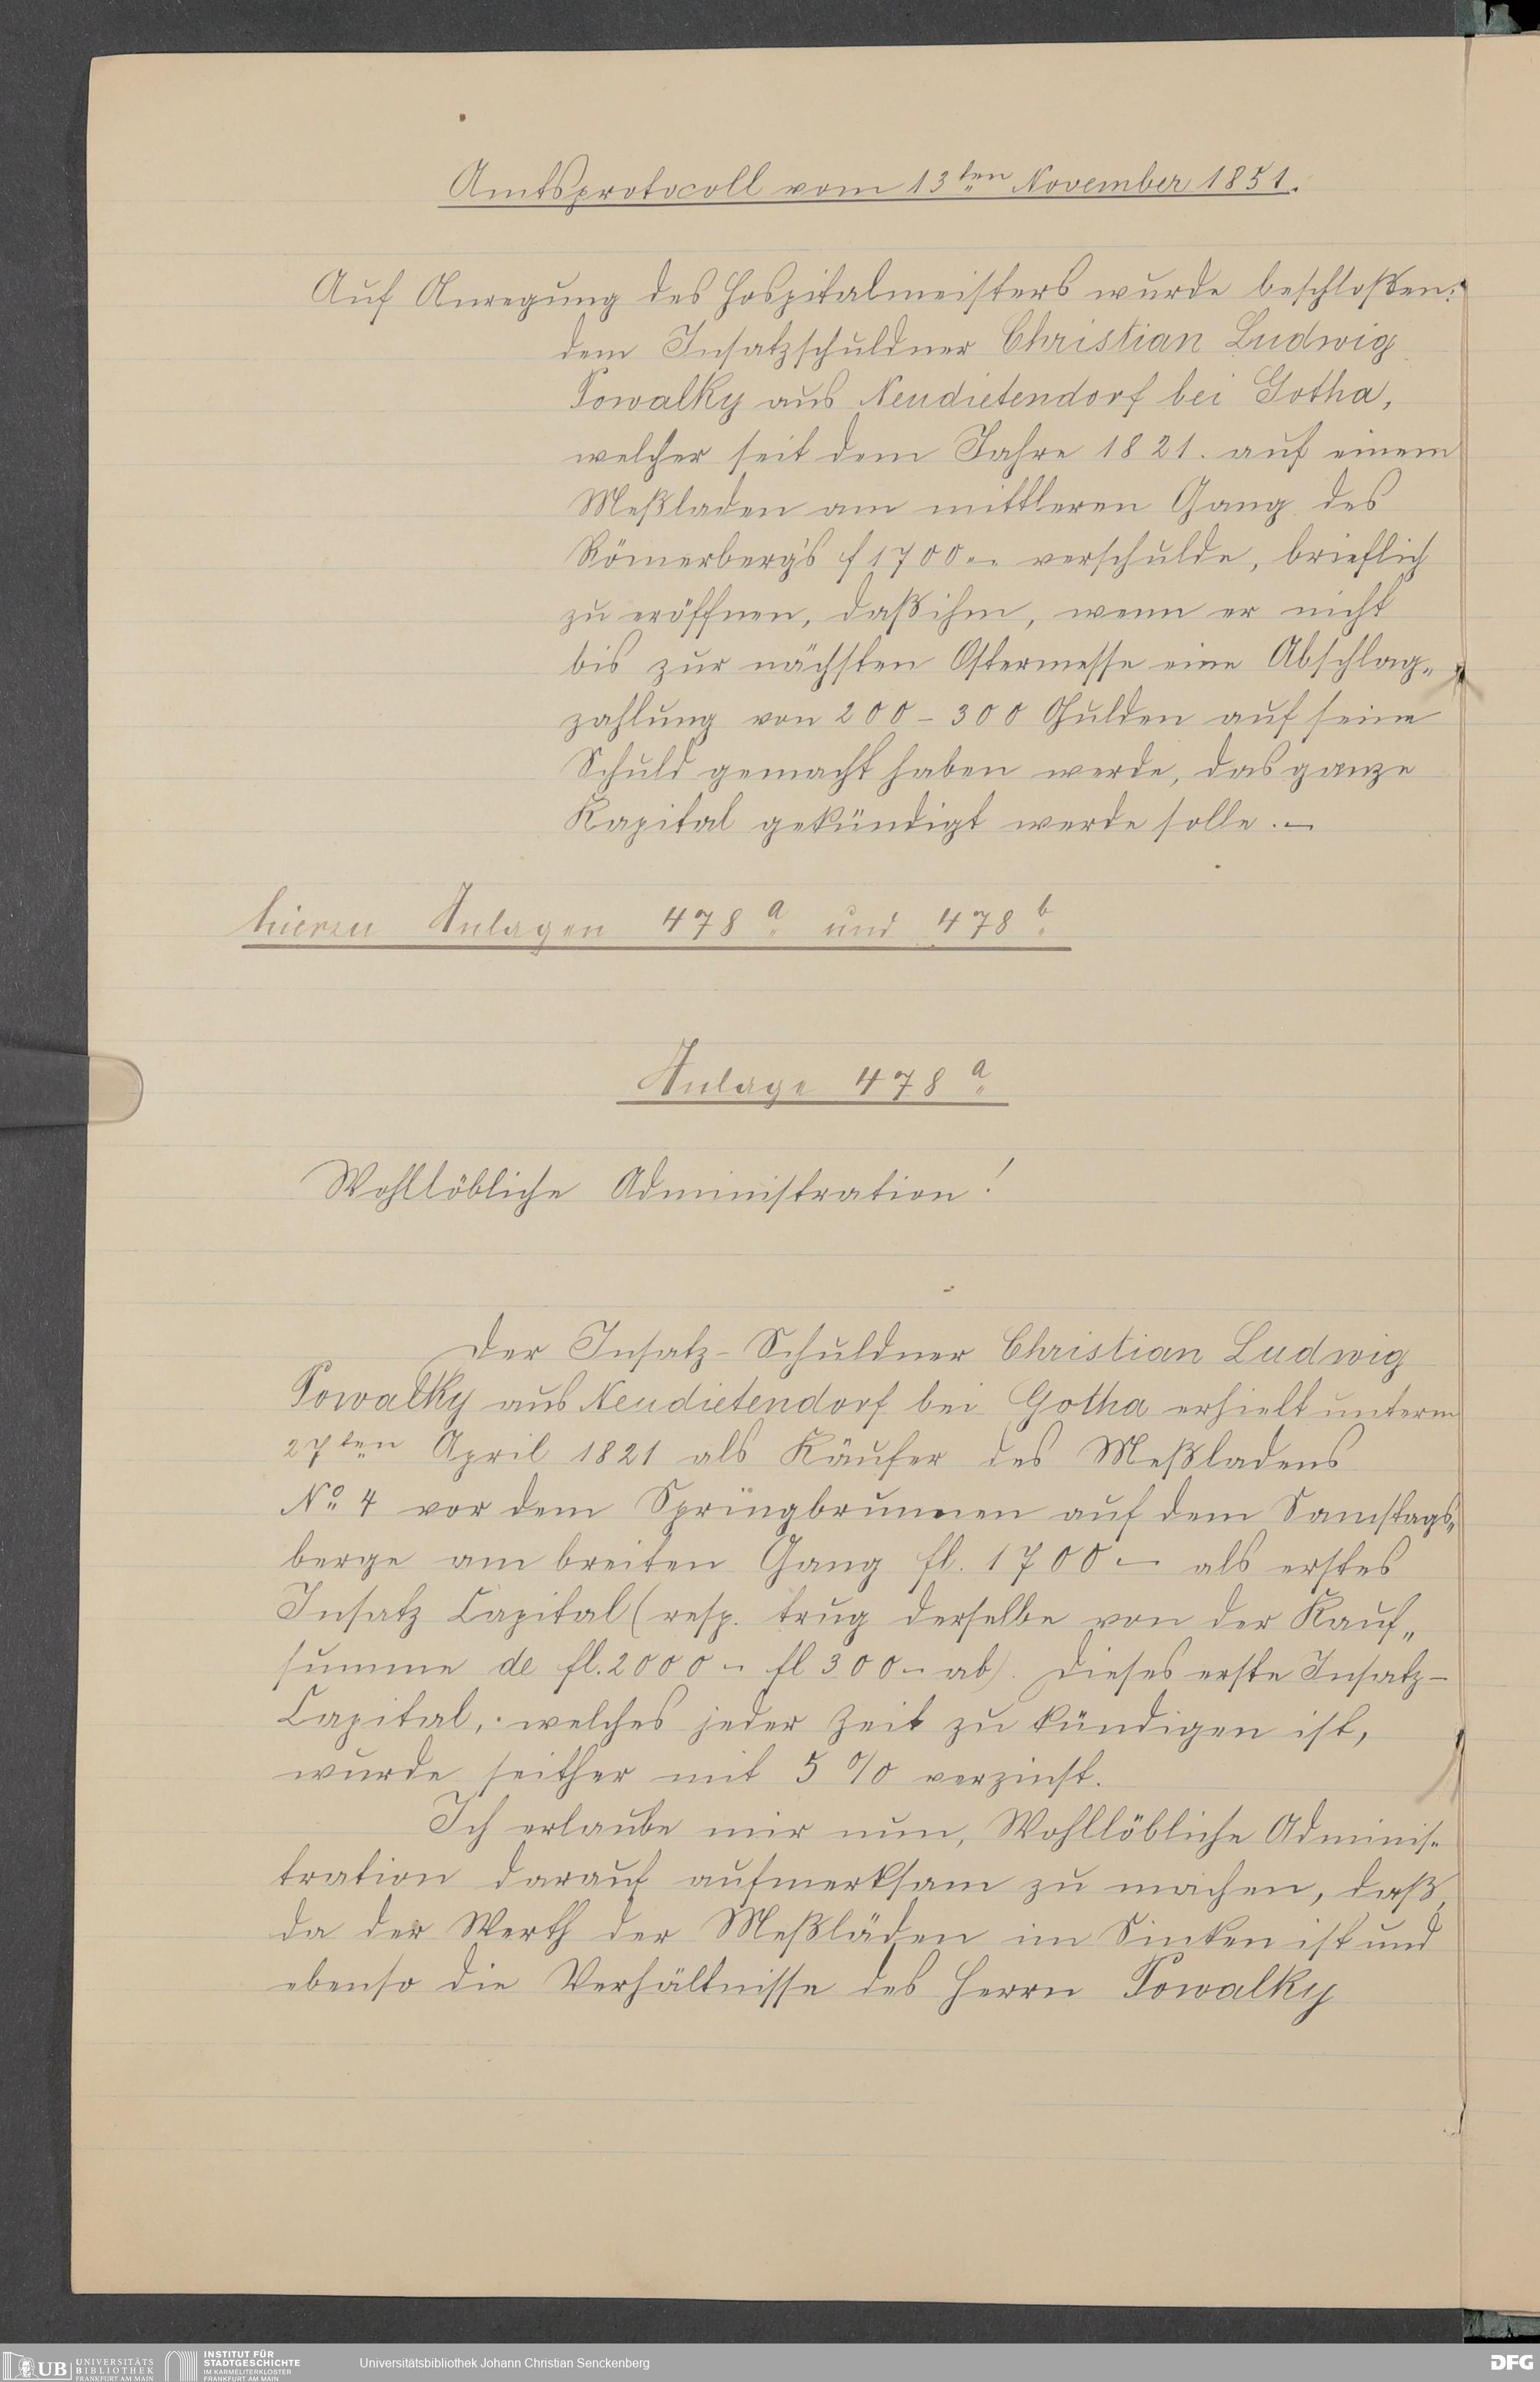 Amtsprotocoll vom 13ten November 1851.
Auf Anregung des Hospitalmeisters wurde beschloßen:
dem Insatzschuldner Christian Ludwig
Powalky aus Neudietendorf bei Gotha,
welcher seit dem Jahre 1821. auf einem
Meßladen am mittleren Gang des
Römerberg's f 1700.-. verschulde, brieflich
zu eröffnen, daß ihm, wenn er nicht
bis zur nächsten Ostermesse eine Abschlag„
zahlung von 200 - 300 Gulden auf seine
Schuld gemacht haben werde, das ganze
Kapital gekündigt werde solle. –
hierzu Anlagen 478a und 478b
Anlage 478a
Wohllöbliche Administration!
Der Insatz-Schuldner Christian Ludwig
Powalky aus Neudietendorf bei Gotha erhielt unterm
27ten April 1821 als Käufer des Meßladens
No 4 vor dem Springbrunnen auf dem Samstags„
berge am breiten Gang fl. 1700 – als erstes
Insatz Capital (resp. trug derselbe von der Kauf„
summe de fl. 2000 - fl 300 - ab). Dieses erste Insatz-
Capital, welches jeder Zeit zu kündigen ist,
wurde seither mit 5 % verzinst.
Ich erlaube mir nun, Wohllöbliche Adminis-
tration darauf aufmerksam zu machen, daß,
da der Werth der Meßläden im Sinken ist und
ebenso die Verhältnisse des Herrn Powalky
UB UNIVERSITÄTS
BIBLIOTHEK
FRANKFURT AM MAIN
INSTITUT FÜR
STADTGESCHICHTE
IM KARMELITERKLOSTER
FRANKFURT AM MAIN
Universitätsbibliothek Johann Christian Senckenberg
DFG